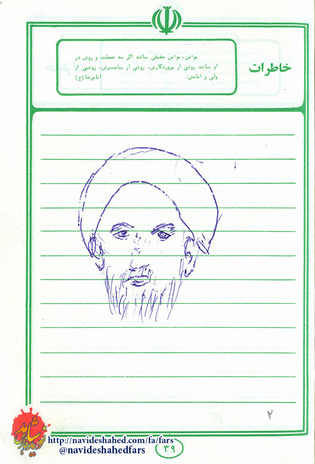 خاطرات
مؤمن، مؤمن حقیقی نباشد اگر سه خصلت و روش در
او نباشد روشی از پروردگارش، روشی از پیامبرش، روشی از
ولی و امامش. امام رضا (ع)
۲
نوید شاهد
http://navideshahed.com/fa/fars
@navideshahedfars
۳۹